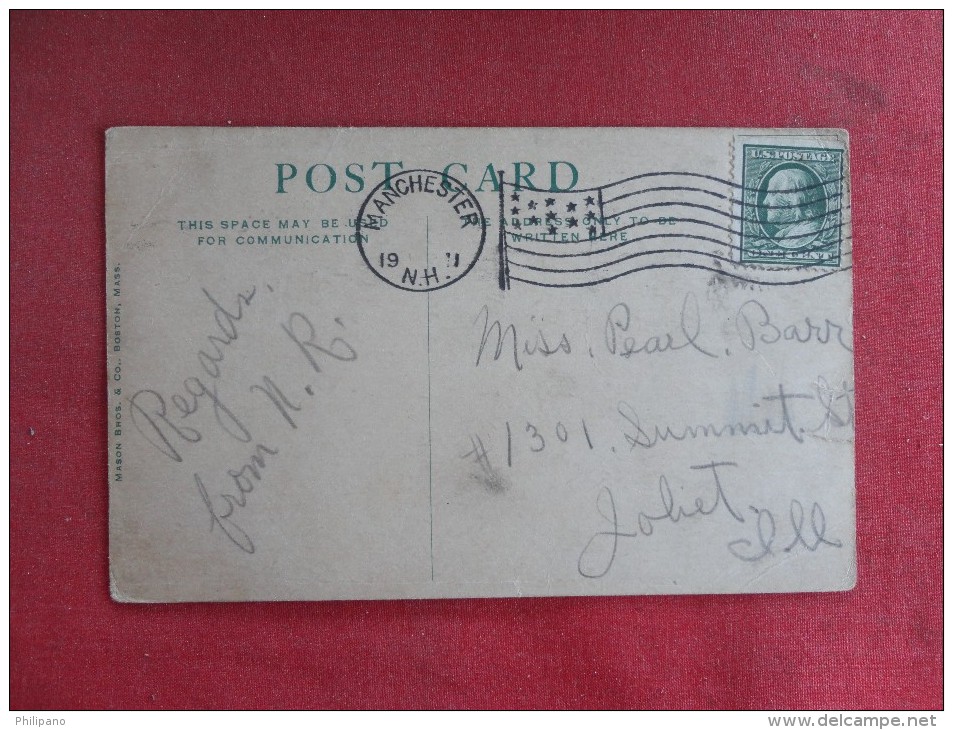 POST CARD
THIS SPACE MAY BE USED
FOR COMMUNICATION
THE ADDRESS ONLY TO BE
WRITTEN HERE
MANCHESTER
19 11
N.H.
U.S. POSTAGE
MASON BROS. & CO., BOSTON, MASS.
Regards.
from N. R.
Miss. Pearl. Barr
#1301. Summit. St
Joliet,
Ill
Philipano
www.delcampe.net